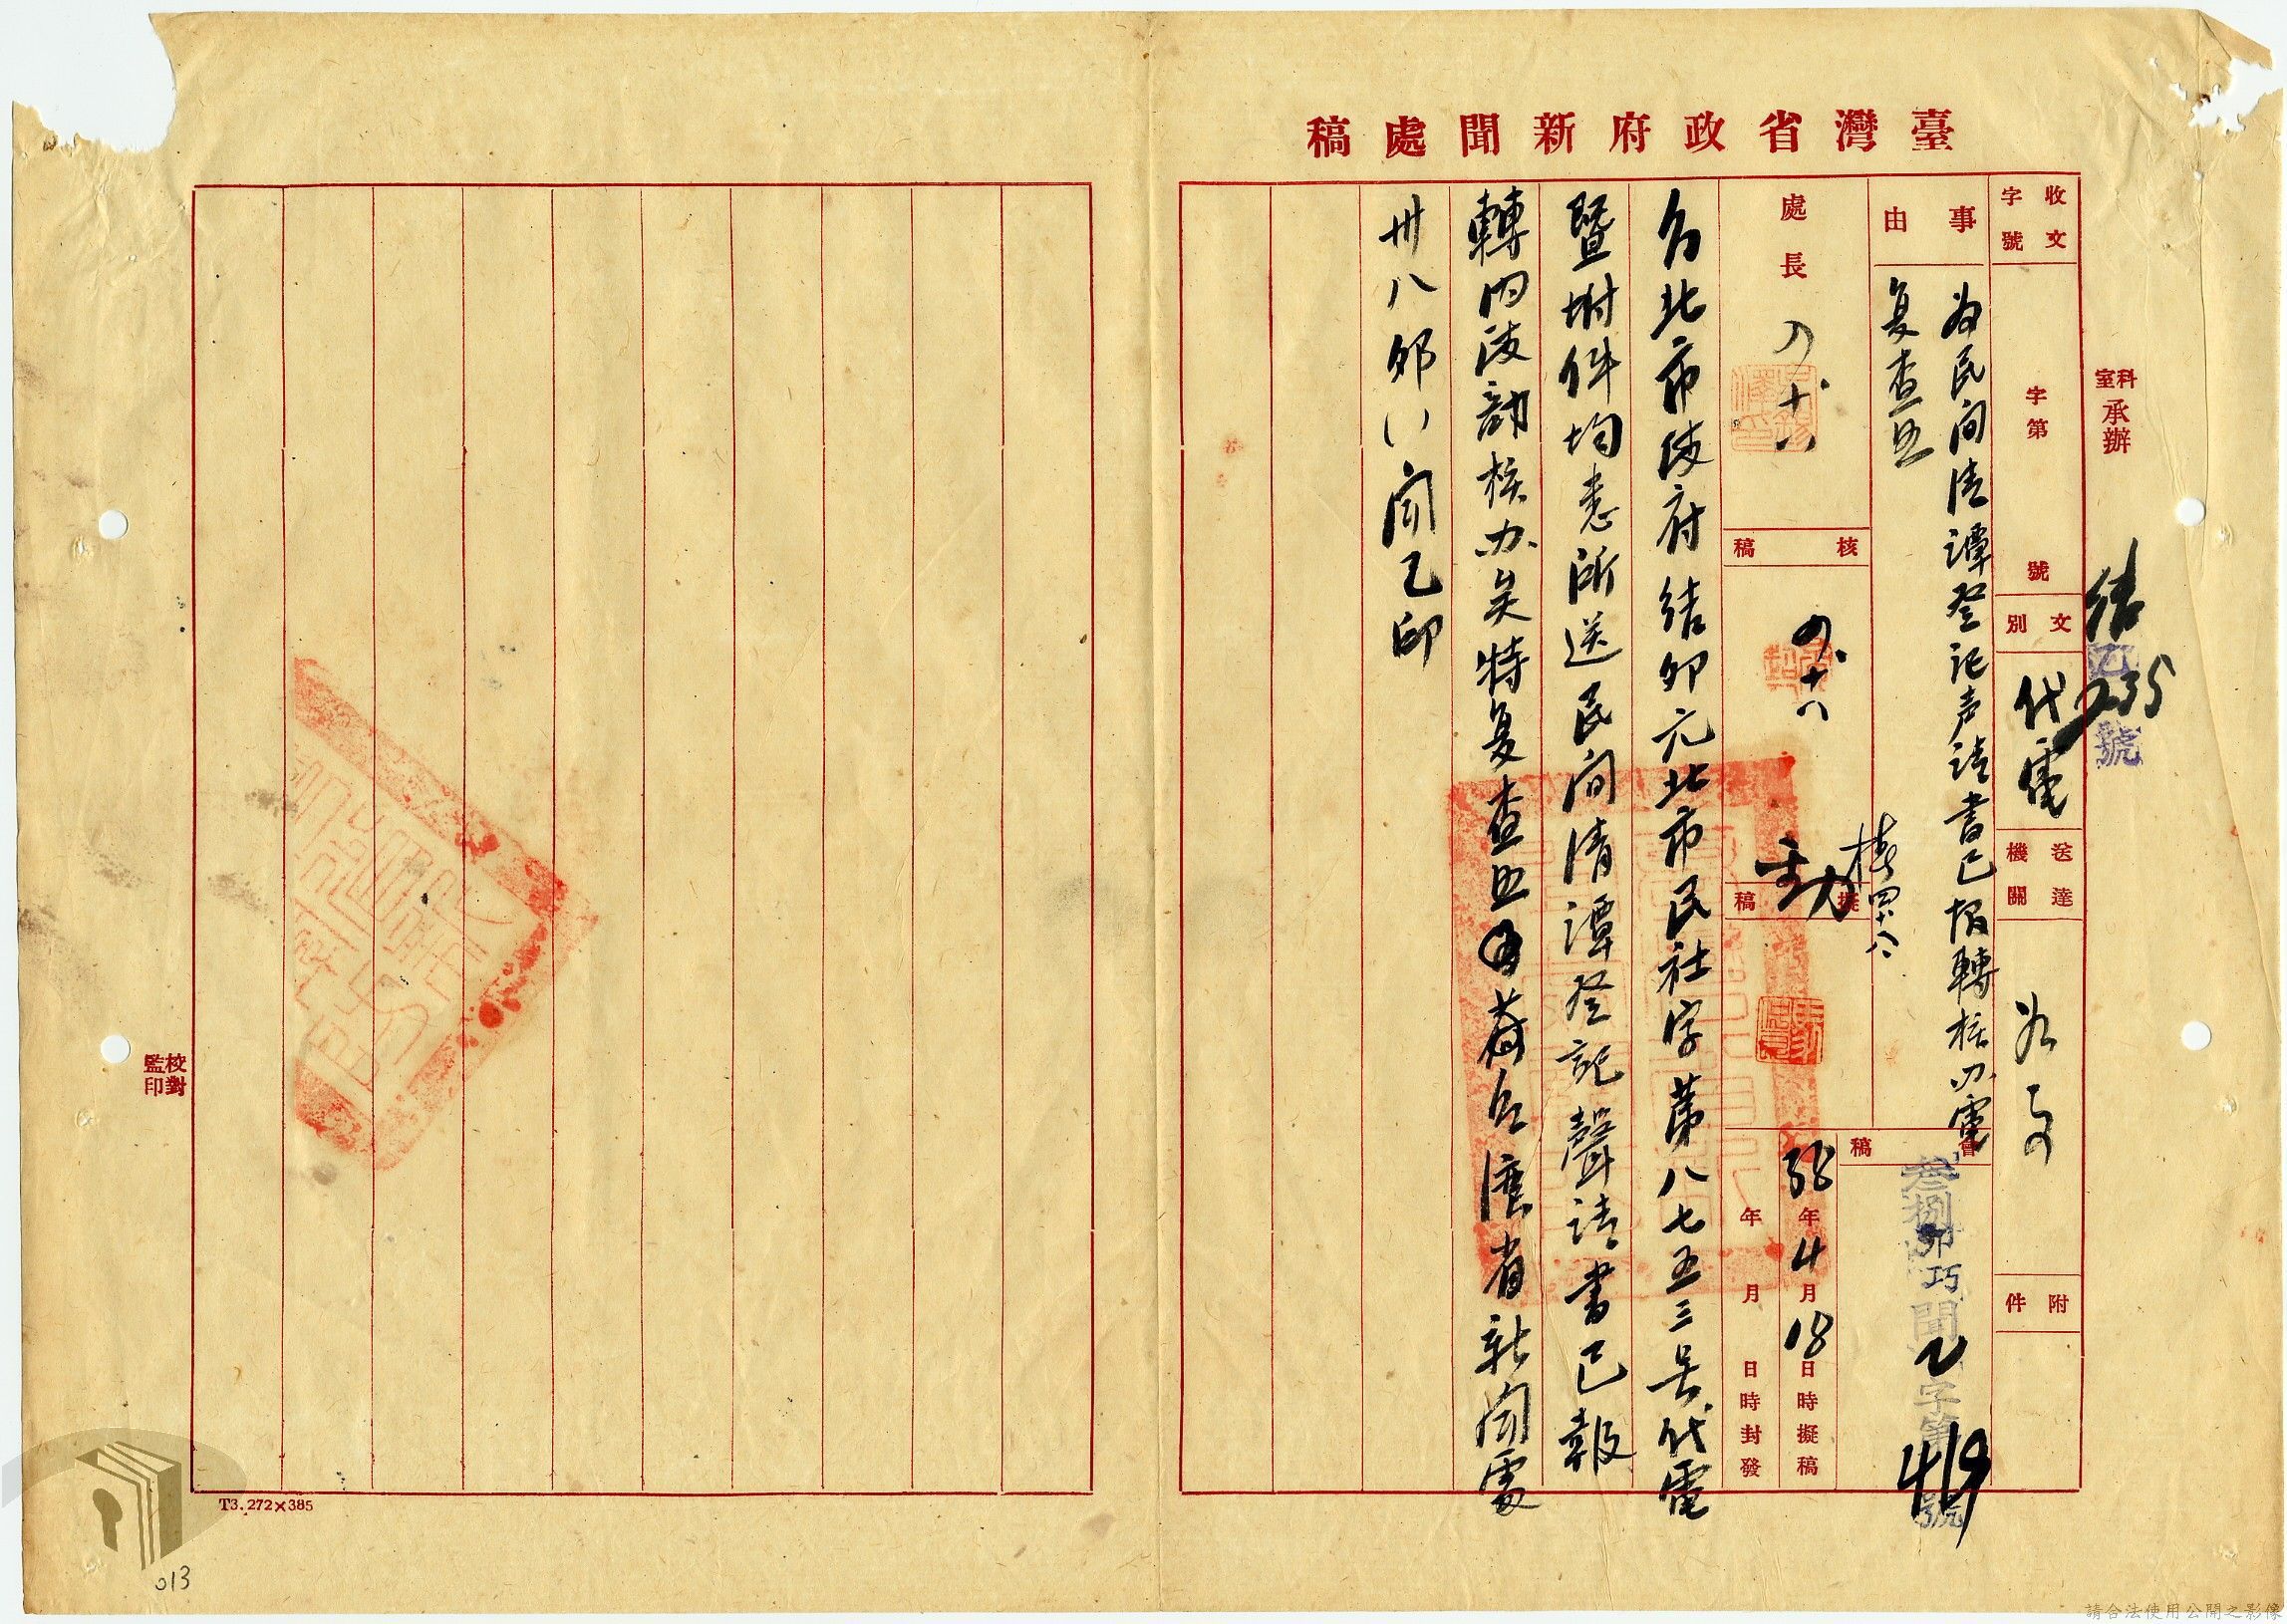 臺灣省政府新聞處稿
科室承辦
結
乙235號
收文字號
字第
號
文別
代電
送達機關
附件
事由
為民间清譚登记声请書已报轉核办電
复查照
會稿
叁捌卯巧聞乙字第419號
處長
四、十八
核稿
四、十八
擬稿
四十八
38年4月18日時擬稿
年月日時封發
台北市政府 结卯元北市民社字第八七五三号代電
暨坿件均悉所送民间清譚登記聲请書已報
轉内政部核办矣特复查照
省新聞處
卅八卯
校對
監印
T3.272×385
013
請合法使用公開之影像